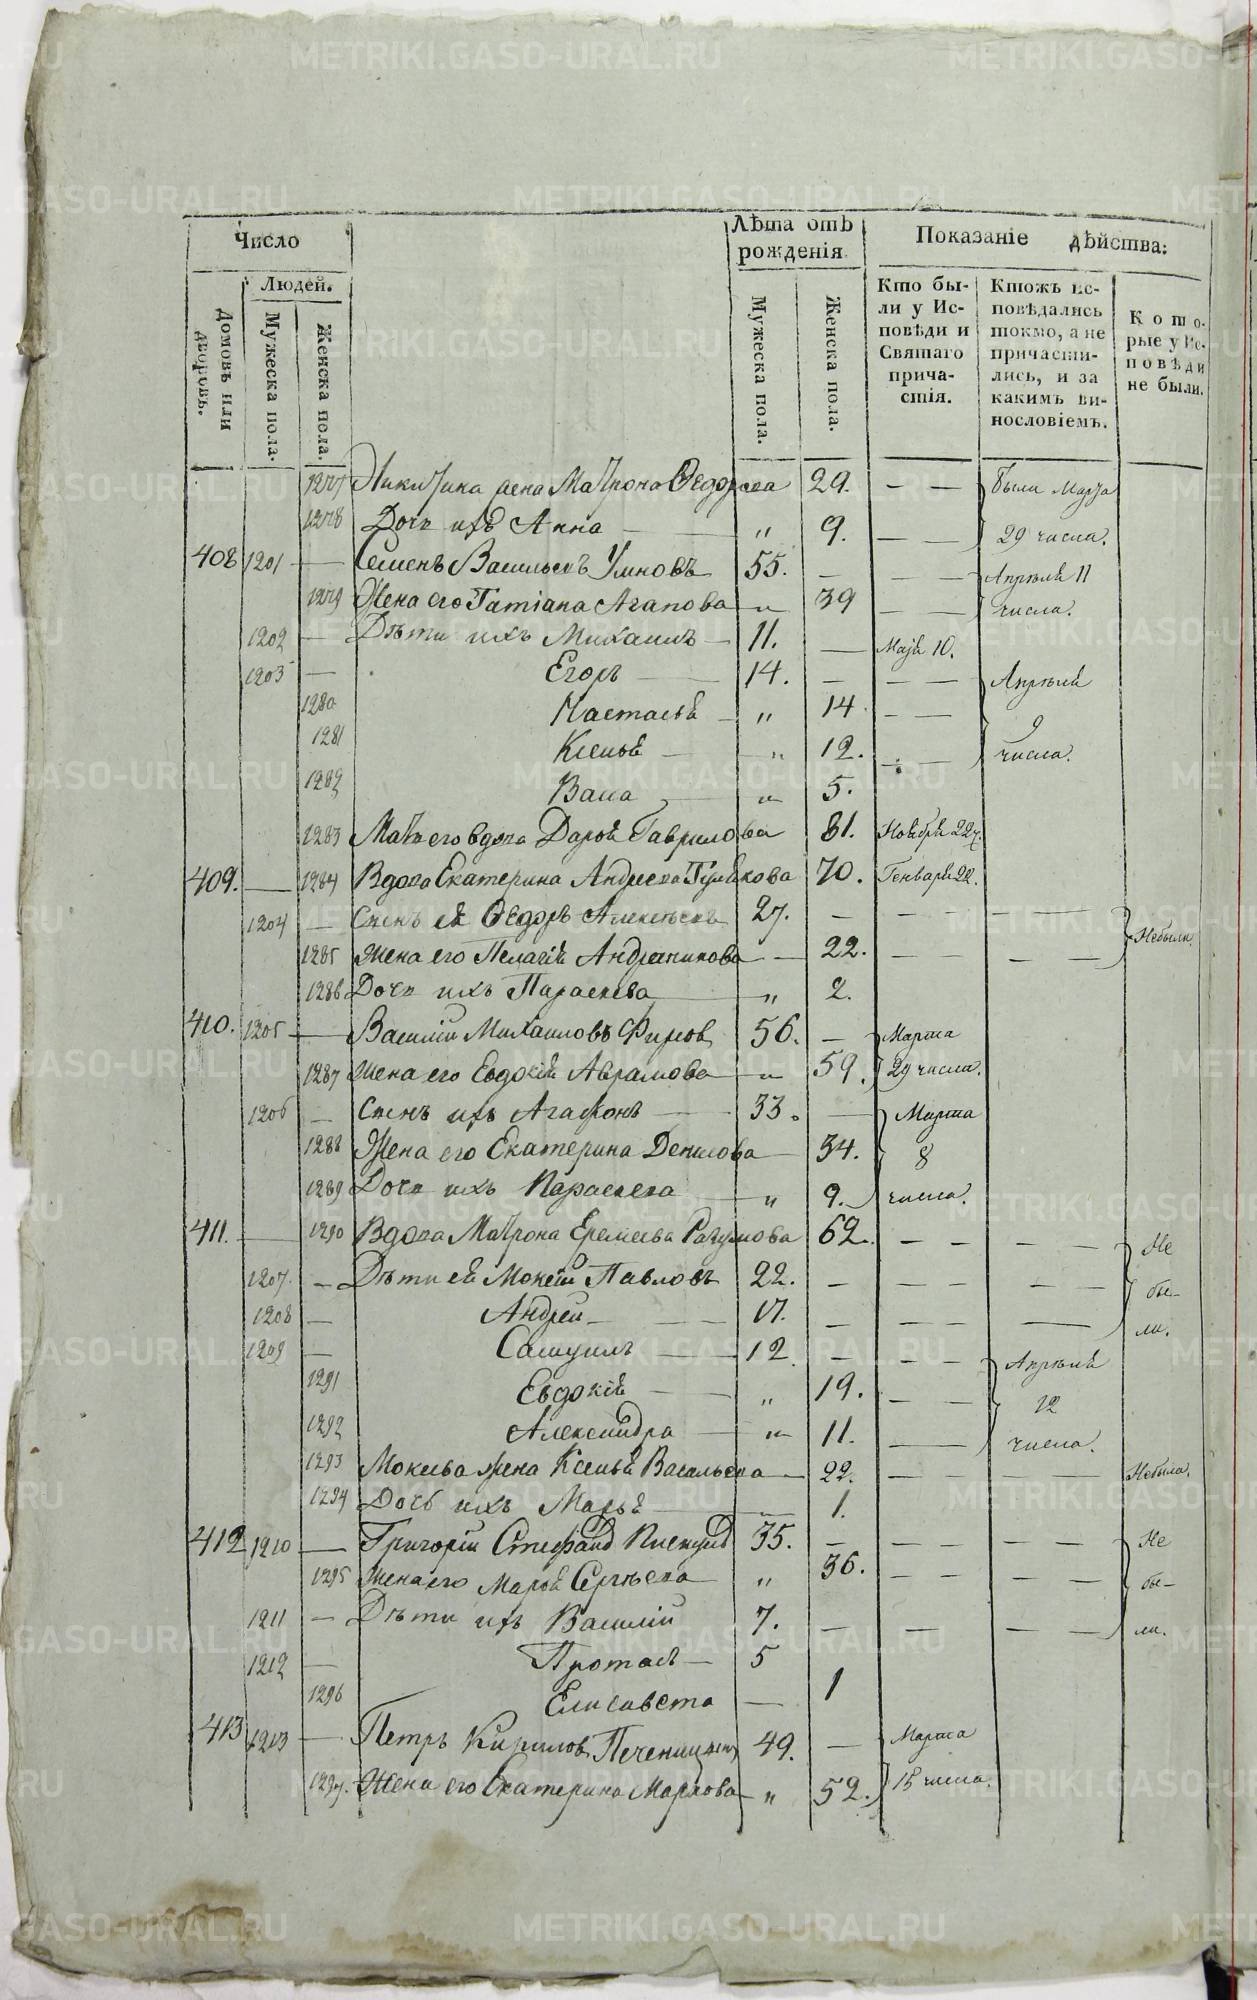 Число
Лѣта отъ рожденія
Показаніе дѣйства:
Людей.
Домовъ или дворовъ.
Мужеска пола.
Женска пола.
Мужеска пола.
Женска пола.
Кто бы-
ли у Ис-
повѣди и
Святаго
прича-
стія.
Ктожъ ис-
повѣдались
токмо, а не
причасти-
лись, и за
какимъ ви-
нословіемъ.
Кото-
рые у Ис-
повѣди
не были.
1277 Никитина жена Матрона Ѳедорова 29. — — были Марта
1278 Дочь ихъ Анна — „ 9. — — 29 числа.
408 1201 — Семенъ Васильевъ Умновъ 55. — — — Апрѣля 11
1279 Жена его Татіана Агапова — „ 39 — — числа.
1202 — Дѣти ихъ Михаилъ — 11. — Маія 10.
1203 — Егоръ — 14. — — — Апрѣля
1280 Настасья — „ 14 — — 9
1281 Ксенья — „ 12. — — числа.
1282 Васа — „ 5.
1283 Мать его вдова Дарья Гаврилова 81. Ноября 22.
409. — 1284 Вдова Екатерина Андреева 70. Генваря 22.
1204 — Сынъ ея Ѳедоръ Алексѣевъ 27. — — — — — Небыли.
1285 Жена его Пелагія Андроникова — — 22. — — — —
1286 Дочь ихъ Параскева — „ 2.
410. 1205 — Василій Михаиловъ Фирсов 56. — Марта
1287 Жена его Евдокія Аврамова — „ 59. 29 числа.
1206 — Сынъ ихъ Агафонъ — 33. — Марта
1288 Жена его Екатерина Денисова — 34. 8
1289 Дочь ихъ Параскева — „ 9. числа.
411. — 1290 Вдова Матрона Еремеева Разумова 62. — — — — Не
1207. — Дѣти ея Мокей Павловъ 22. — — — — — бы-
1208 — Андрей — 17. — — — — ли.
1209 — Самуилъ — 12. — — — Апрѣля
1291 Евдокія — „ 19. — — 12
1292 Александра — „ 11. — числа.
1293 Мокеева жена Ксенья Васильева — 22. — — — — Небыла.
1294 Дочь ихъ Марья — 1.
412 1210 — Григорій 35. — — — — — Не
1295 Жена его Марья Сергѣева „ 36. — — — — бы-
1211 — Дѣти ихъ Василій 7. — — — — ли.
1212 — Протасъ — 5
1296 Елисавета — 1
413 1213 — Петръ Кирилов 49. — Марта
1297. Жена его Екатерина Маркова — „ 52. 15 числа.
METRIKI.GASO-URAL.RU